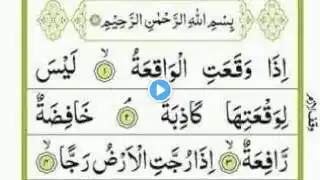 بِسْمِ اللهِ الرَّحْمٰنِ الرَّحِيْمِ
اِذَا وَقَعَتِ الْوَاقِعَةُ ۙ﴿۱﴾ لَيْسَ
لِوَقْعَتِهَا كَاذِبَةٌ ۘ﴿۲﴾ خَافِضَةٌ
رَّافِعَةٌ ۙ﴿۳﴾ اِذَا رُجَّتِ الْاَرْضُ رَجًّا ۙ﴿۴﴾
وقف لازم